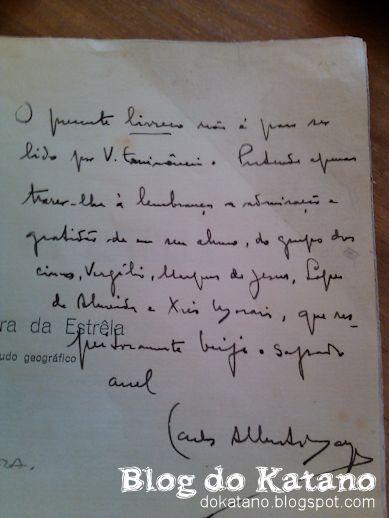 O presente livreco não é para ser
lido por V. Eminência. Pretende apenas
trazer-lhe à lembrança a admiração e
gratidão de um seu aluno, do grupo dos
cinco, Vergílio, Marques de Jesus, Lopes
de Almeida e Xavier Morais, que res-
peitosamente beija o sagrado
anel
ra da Estrêla
udo geográfico
Carlos Alberto
RA.
Blog do Katano
dokatano.blogspot.com